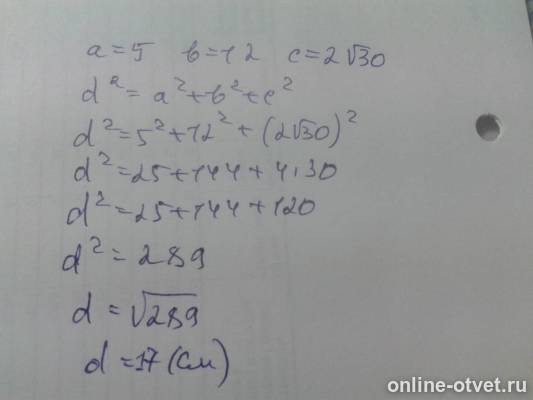 a = 5 в = 12 c = 2√30
d² = a² + в² + c²
d² = 5² + 12² + (2√30)²
d² = 25 + 144 + 4·30
d² = 25 + 144 + 120
d² = 289
d = √289
d = 17 (см)
online-otvet.ru